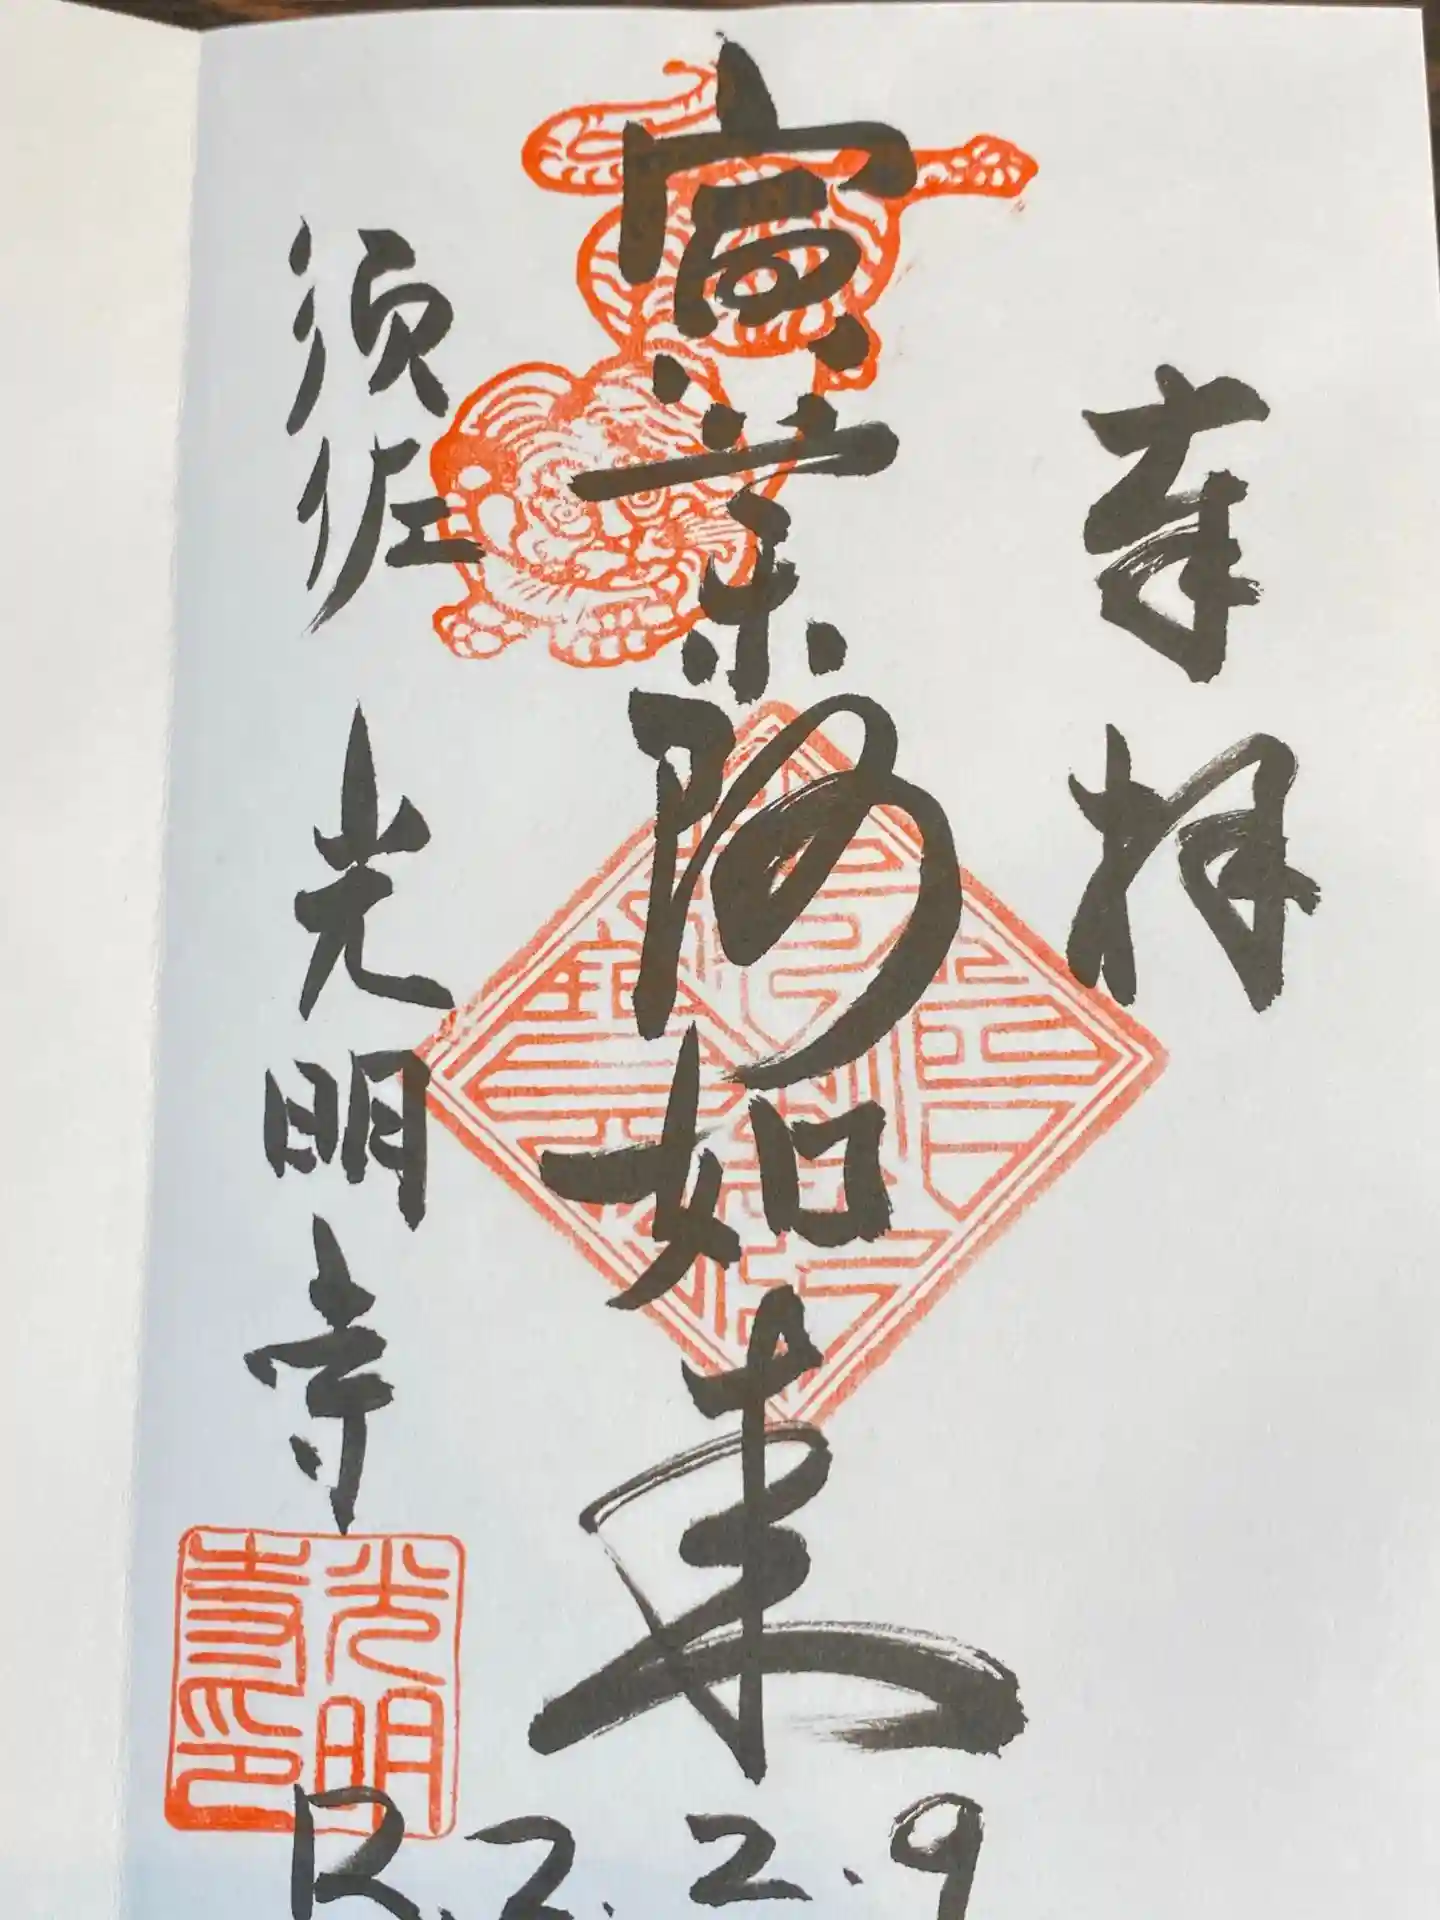 奉拝
寅薬師如来
須佐 光明寺
光明寺印
R.2.2.9